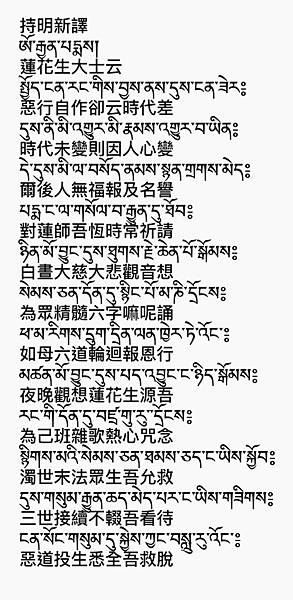 持明新譯
ཨོ་རྒྱན་པདྨས།
蓮花生大士云
སྤྱོད་ངན་རང་གིས་བྱས་ནས་དུས་ངན་ཟེར༔
惡行自作卻云時代差
དུས་ནི་མི་འགྱུར་མི་རྣམས་འགྱུར་བ་ཡིན༔
時代未變則因人心變
དེ་དུས་མི་ལ་བསོད་ནམས་སྙན་གྲགས་མེད༔
爾後人無福報及名譽
པདྨ་ང་ལ་གསོལ་བ་རྒྱུན་དུ་ཐོབ༔
對蓮師吾恆時常祈請
ཉིན་མོ་བྱུང་དུས་ཐུགས་རྗེ་ཆེན་པོ་སྒོམས༔
白晝大慈大悲觀音想
སེམས་ཅན་དོན་དུ་སྙིང་པོ་མ་ཎི་དྲོངས༔
為眾精髓六字嘛呢誦
ཕ་མ་རིགས་དྲུག་དྲིན་ལན་ཁྱེར་ཏེ་འོང་༔
如母六道輪迴報恩行
མཚན་མོ་བྱུང་དུས་པད་འབྱུང་ང་ཉིད་སྒོམས༔
夜晚觀想蓮花生源吾
རང་གི་དོན་དུ་བཛྲ་གུ་རུ་དྲོངས༔
為己班雜歌熱心咒念
སྙིགས་མའི་སེམས་ཅན་ཐམས་ཅད་ང་ཡིས་སྐྱོབ༔
濁世末法眾生吾允救
དུས་གསུམ་རྒྱུན་ཆད་མེད་པར་ང་ཡིས་གཟིགས༔
三世接續不輟吾看待
ངན་སོང་གསུམ་དུ་སྐྱེས་ཀྱང་བསླུ་རུ་འོང་༔
惡道投生悉全吾救脫